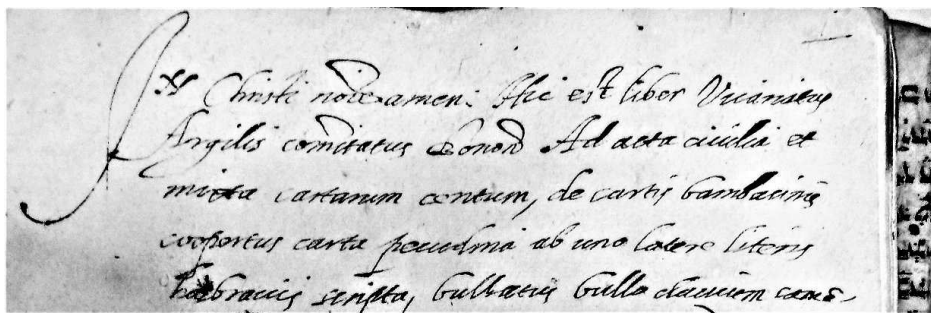 In Christi no(m)i(n)e amen: Hic est liber Vicariatus
Argilis comitatus Bonon Ad acta civilia et
mixta cartarum centum, de cartis bambacinis
coopertus carta pecudina ab uno latere literis
hebraicis scripta, bullatus bulla